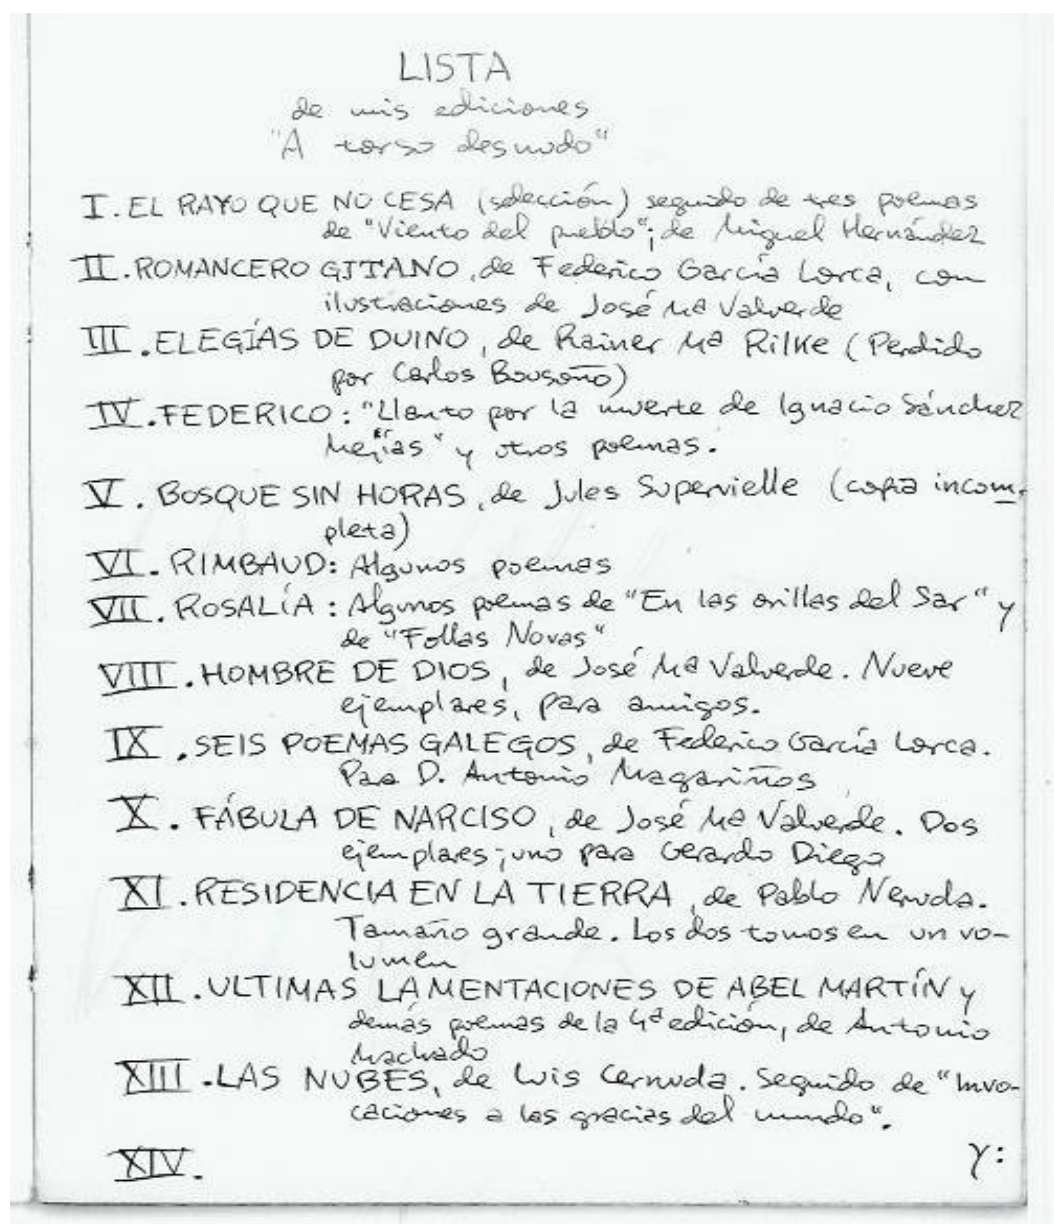 LISTA
de mis ediciones
"A torso desnudo"
I. EL RAYO QUE NO CESA (selección) seguido de tres poemas
de "Viento del pueblo"; de Miguel Hernández
II. ROMANCERO GITANO, de Federico García Lorca, con
ilustraciones de José Mª Valverde
III. ELEGÍAS DE DUINO, de Rainer Mª Rilke (Perdido
por Carlos Bousoño)
IV. FEDERICO: "Llanto por la muerte de Ignacio Sánchez
Mejías" y otros poemas.
V. BOSQUE SIN HORAS, de Jules Supervielle (copia incom-
pleta)
VI. RIMBAUD: Algunos poemas
VII. ROSALÍA: Algunos poemas de "En las orillas del Sar" y
de "Follas Novas"
VIII. HOMBRE DE DIOS, de José Mª Valverde. Nueve
ejemplares, para amigos.
IX. SEIS POEMAS GALEGOS, de Federico García Lorca.
Para D. Antonio Magariños
X. FÁBULA DE NARCISO, de José Mª Valverde. Dos
ejemplares; uno para Gerardo Diego
XI. RESIDENCIA EN LA TIERRA, de Pablo Neruda.
Tamaño grande. Los dos tomos en un vo-
lumen
XII. ULTIMAS LAMENTACIONES DE ABEL MARTÍN y
demás poemas de la 4ª edición, de Antonio
Machado
XIII. LAS NUBES, de Luis Cernuda. Seguido de "Invo-
caciones a las gracias del mundo".
XIV. y: